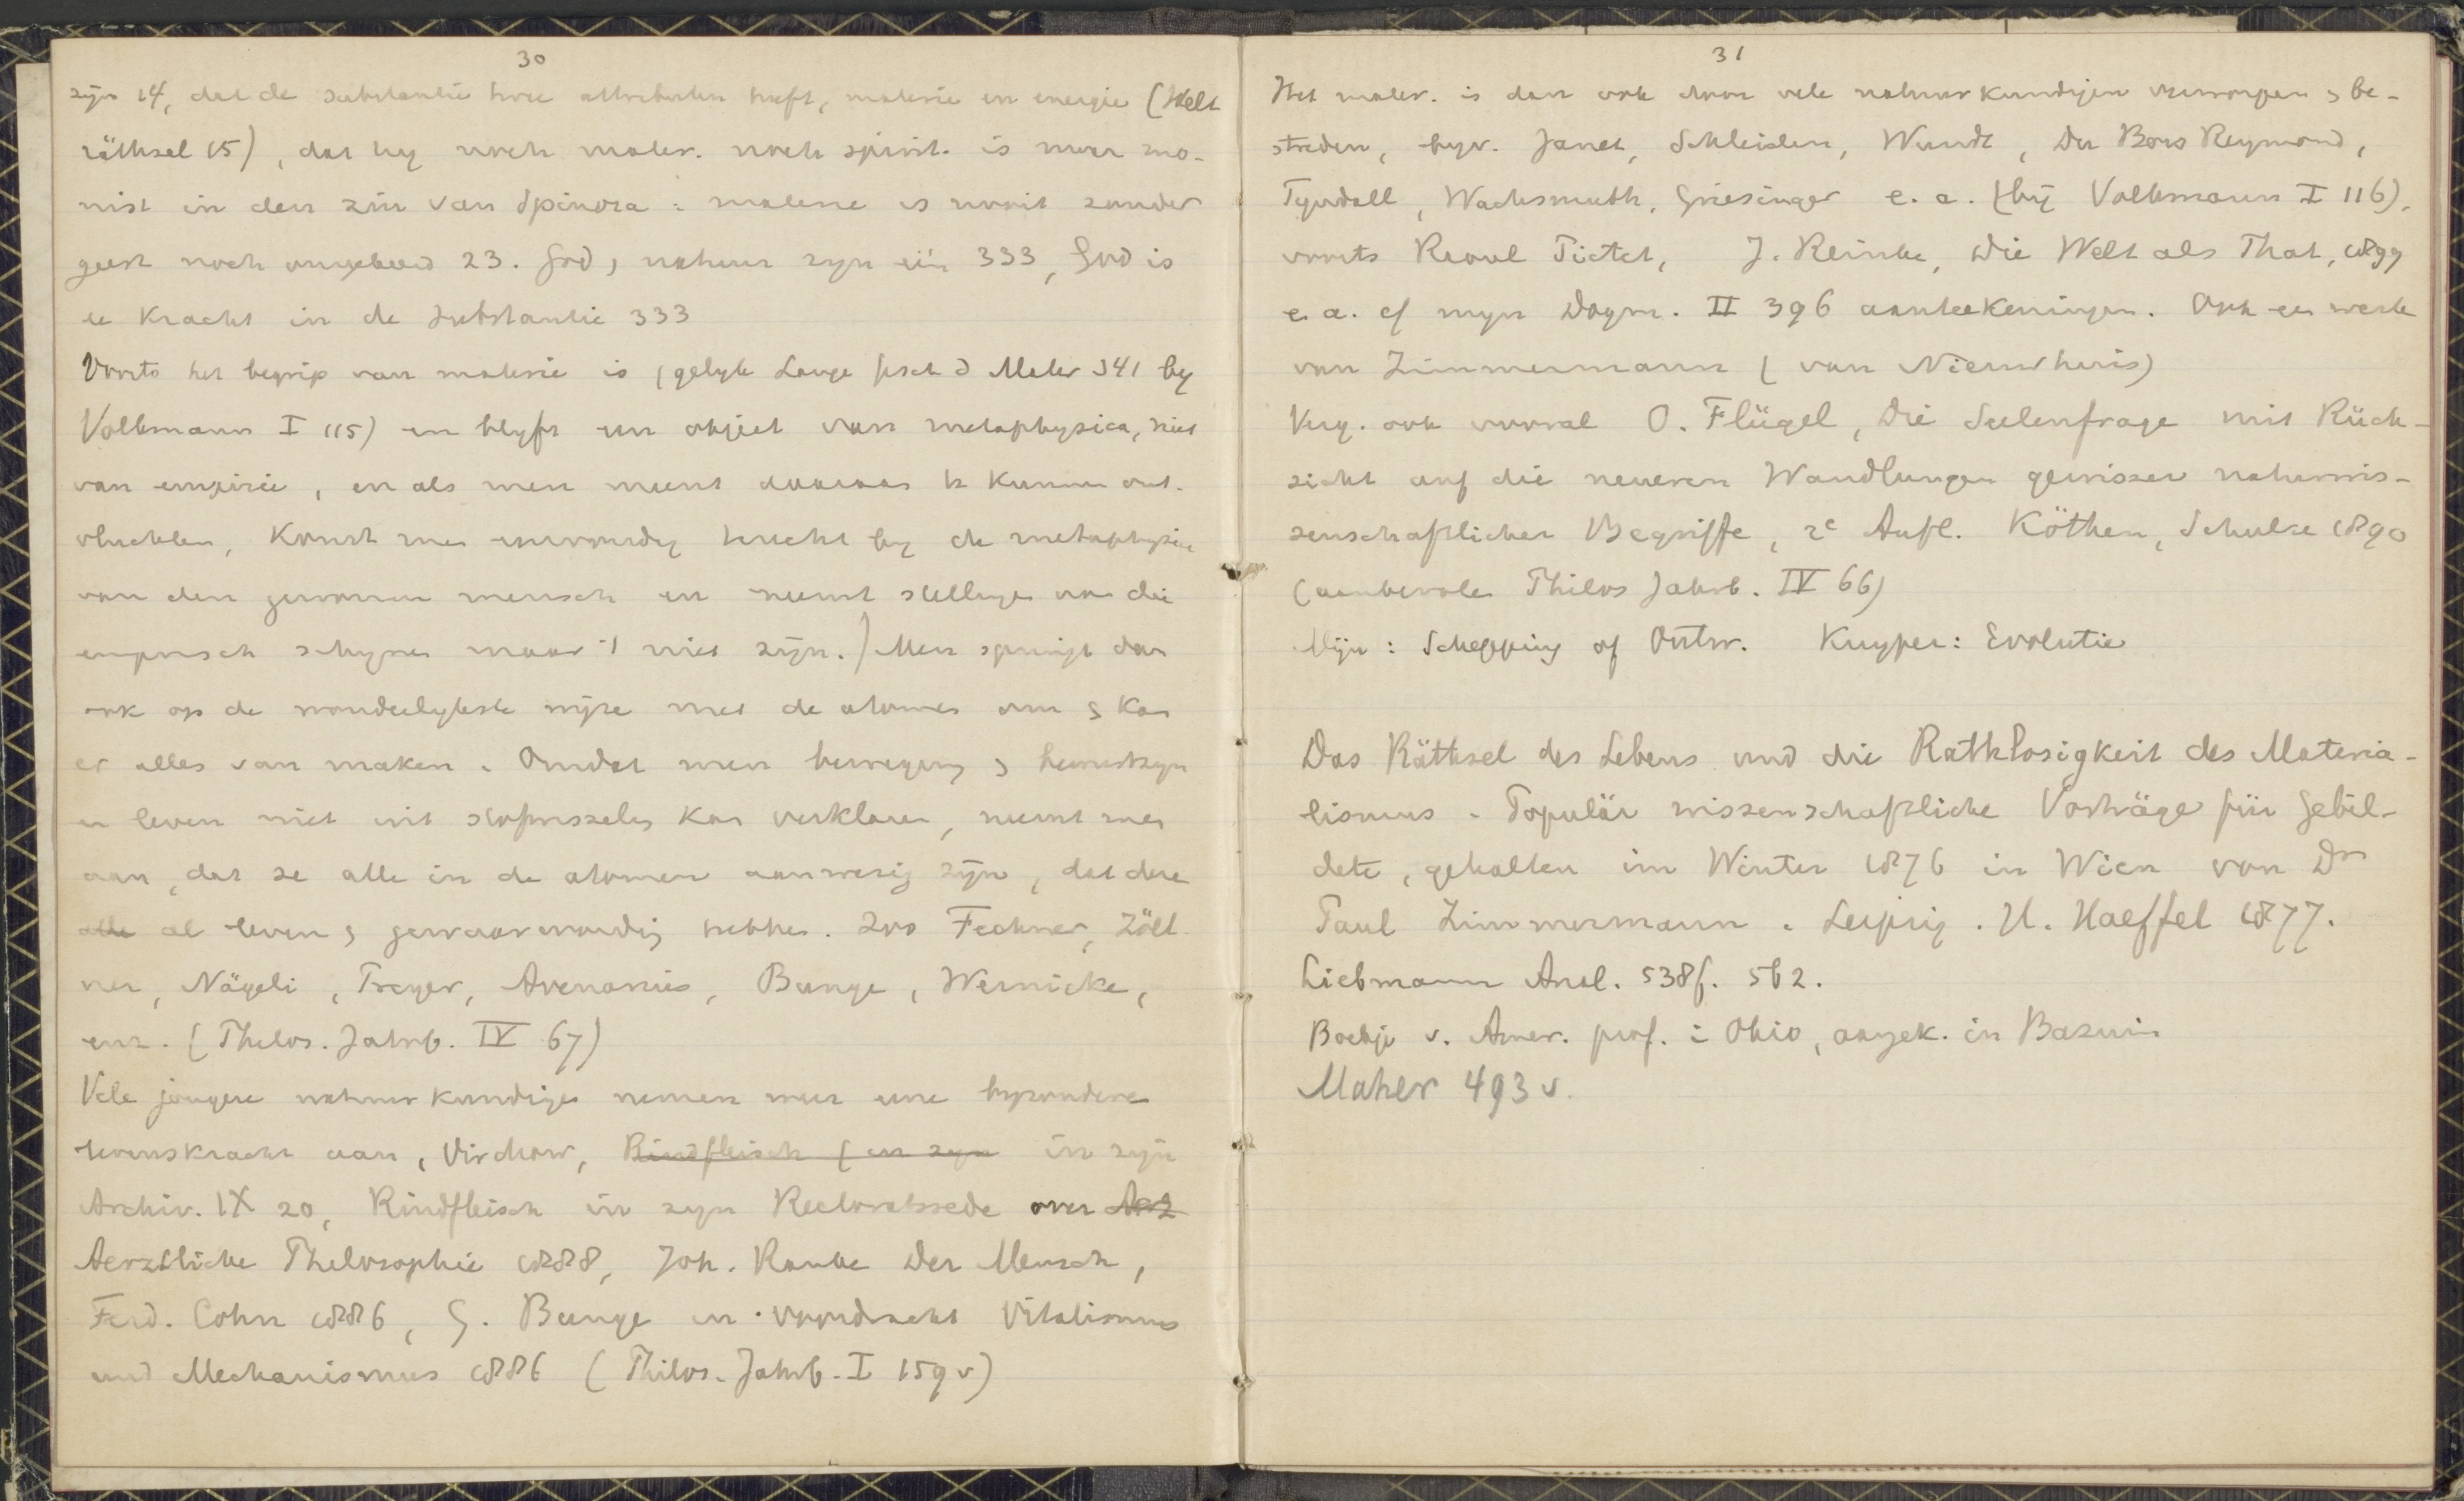 30
zijn 14, dat de substantie twee attributen heeft, materie en energie (Welt
räthsel 15), dat hij noch mater. noch spirit. is maar mo-
nist in den zin van Spinoza: materie is nooit zonder
geest noch omgekeerd 23. God & natuur zijn één 333, God is
de kracht in de substantie 333
Voorts het begrip van materie is (gelijk Lange Gesch d Mater 341 bij
Volkmann I 115) en blijft een object van metaphysica, niet
van empirie, en als men meent daaraan te kunnen ont-
vluchten, komt men eenvoudig terecht bij de metaphysica
van den gewonen mensch en neemt stellingen aan die
empirisch schijnen maar 't niet zijn.) Men springt dan
ook op de wonderlijkste wijze met de atomen om & kan
er alles van maken. Omdat men beweging & bewustzijn
en leven niet uit stofwisseling kan verklaren, neemt men
aan, dat ze alle in de atomen aanwezig zijn, dat deze
alle al leven & gewaarwording hebben. Zoo Fechner, Zöll-
ner, Nägeli, Preyer, Avenarius, Bunge, Wernicke,
enz. (Philos. Jahrb. IV 67)
Vele jongere natuurkundigen nemen weer eene bijzondere
levenskracht aan, Virchow, Rindfleisch (in zijn in zijn
Archiv. IX 20, Rindfleisch in zijn Rectoratsrede over Aerz
Aerztliche Philosophie 1888, Joh. Ranke Der Mensch,
Ferd. Cohn 1886, G. Bunge in voordracht Vitalismus
und Mechanismus 1886 (Philos. Jahrb. I 159 v)
31
Het mater. is dan ook door vele natuurkundigen verworpen & be-
streden, bijv. Janet, Schleiden, Wundt, Du Bois Reymond,
Tyndall, Wachsmuth, Griesinger e. a. (bij Volkmann I 116),
voorts Raoul Pictet, J. Reinke, Die Welt als That, 1899
e. a. cf mijn Dogm. II 396 aanteekeningen. Ook een werk
van Zimmermann (van Nieuwhuis)
Verg. ook vooral O. Flügel, Die Seelenfrage mit Rück-
sicht auf die neueren Wandlungen gewisser naturwis-
senschaftlicher Begriffe, 2e Aufl. Köthen, Schulze 1890
(aanbevolen Philos Jahrb. IV 66)
Mijn: Schepping of Ontw. Kuyper: Evolutie
Das Räthsel des Lebens und die Rathlosigkeit des Materia-
lismus. Populär wissenschaftliche Vorträge für Gebil-
dete, gehalten im Winter 1876 in Wien von Dr
Paul Zimmermann. Leipzig. H. Haeffel 1877.
Liebmann Anal. 538f. 562.
Boekje v. Amer. prof. in Ohio, aangek. in Bazuin
Maher 493 v.